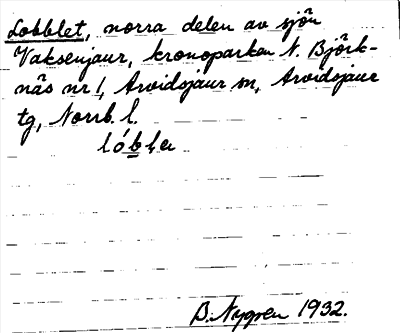 Lobblet, norra delen av sjön
Vaksenjaur, kronoparken N. Björk-
näs nr 1, Arvidsjaur sn, Arvidsjaur
tg, Norrb. l.
lób̲l,er
B. Nygren 1932.